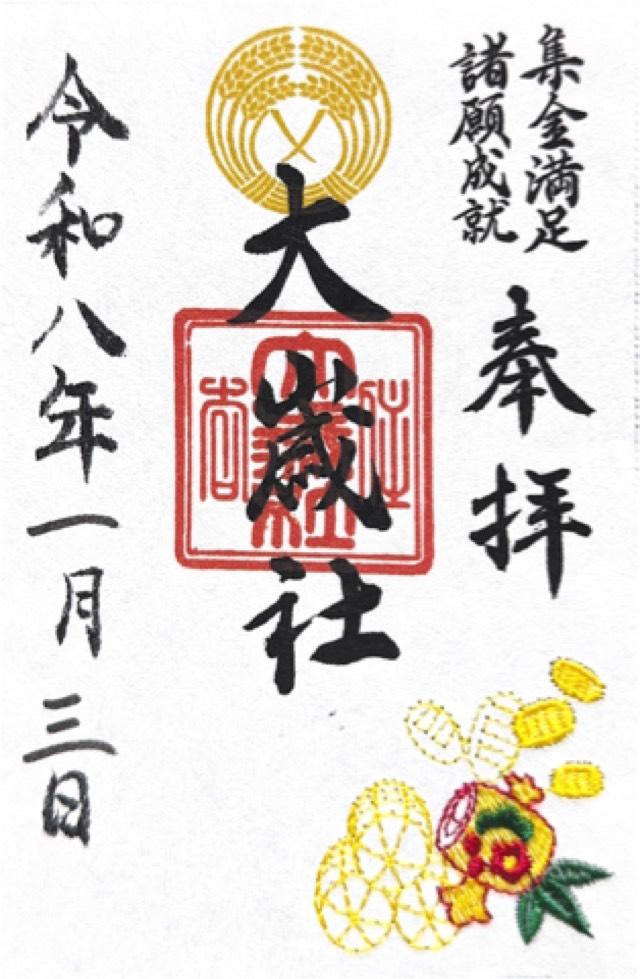 集金満足
諸願成就
奉拝
大歳社
令和八年一月三日